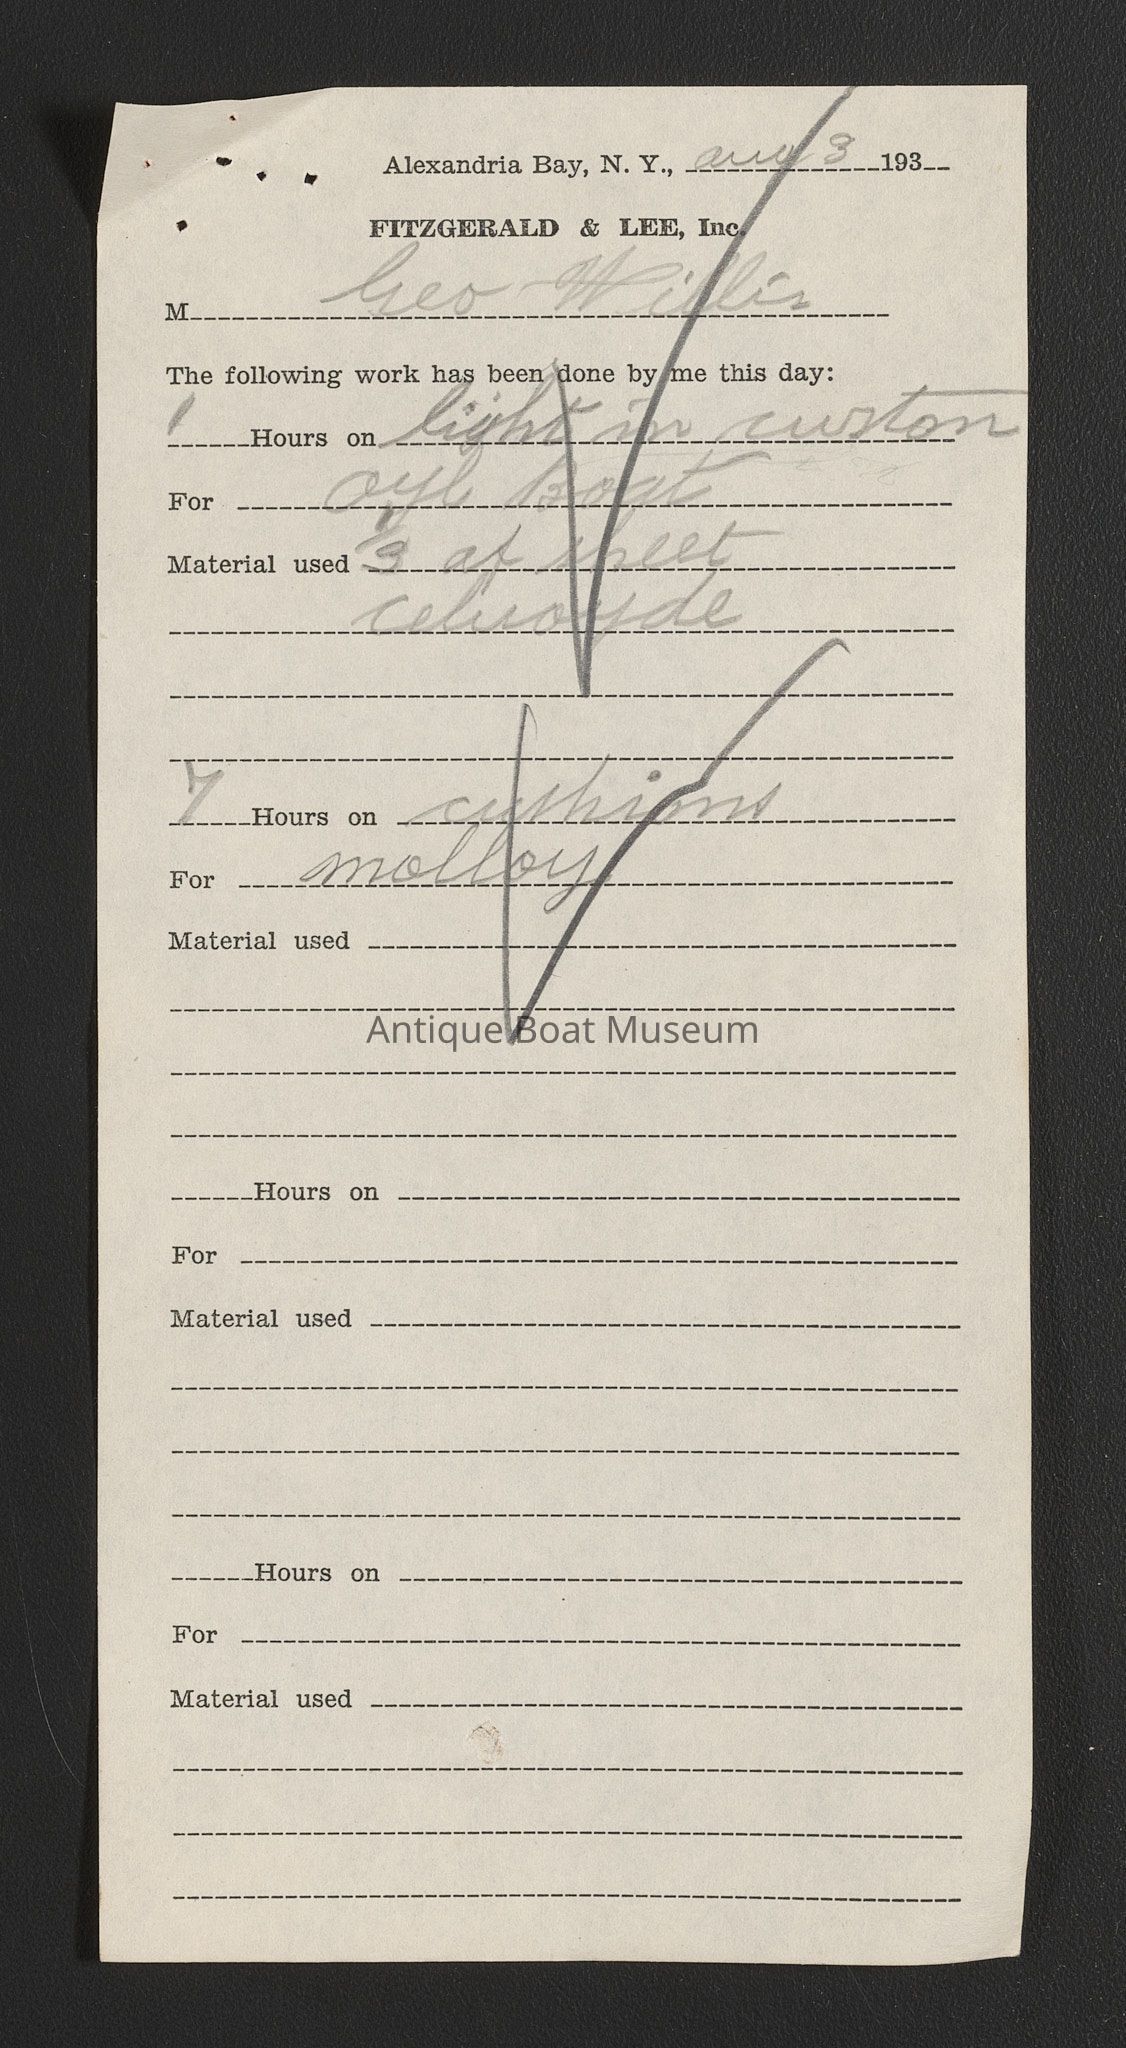 Alexandria Bay, N. Y., aug 3 193
FITZGERALD & LEE, Inc.
M Geo Willis
The following work has been done by me this day:
1 Hours on light in curston
For oyl Boat
Material used 1/3 of sheet
celuoyde
7 Hours on cushions
For molloy
Material used
Antique Boat Museum
Hours on
For
Material used
Hours on
For
Material used